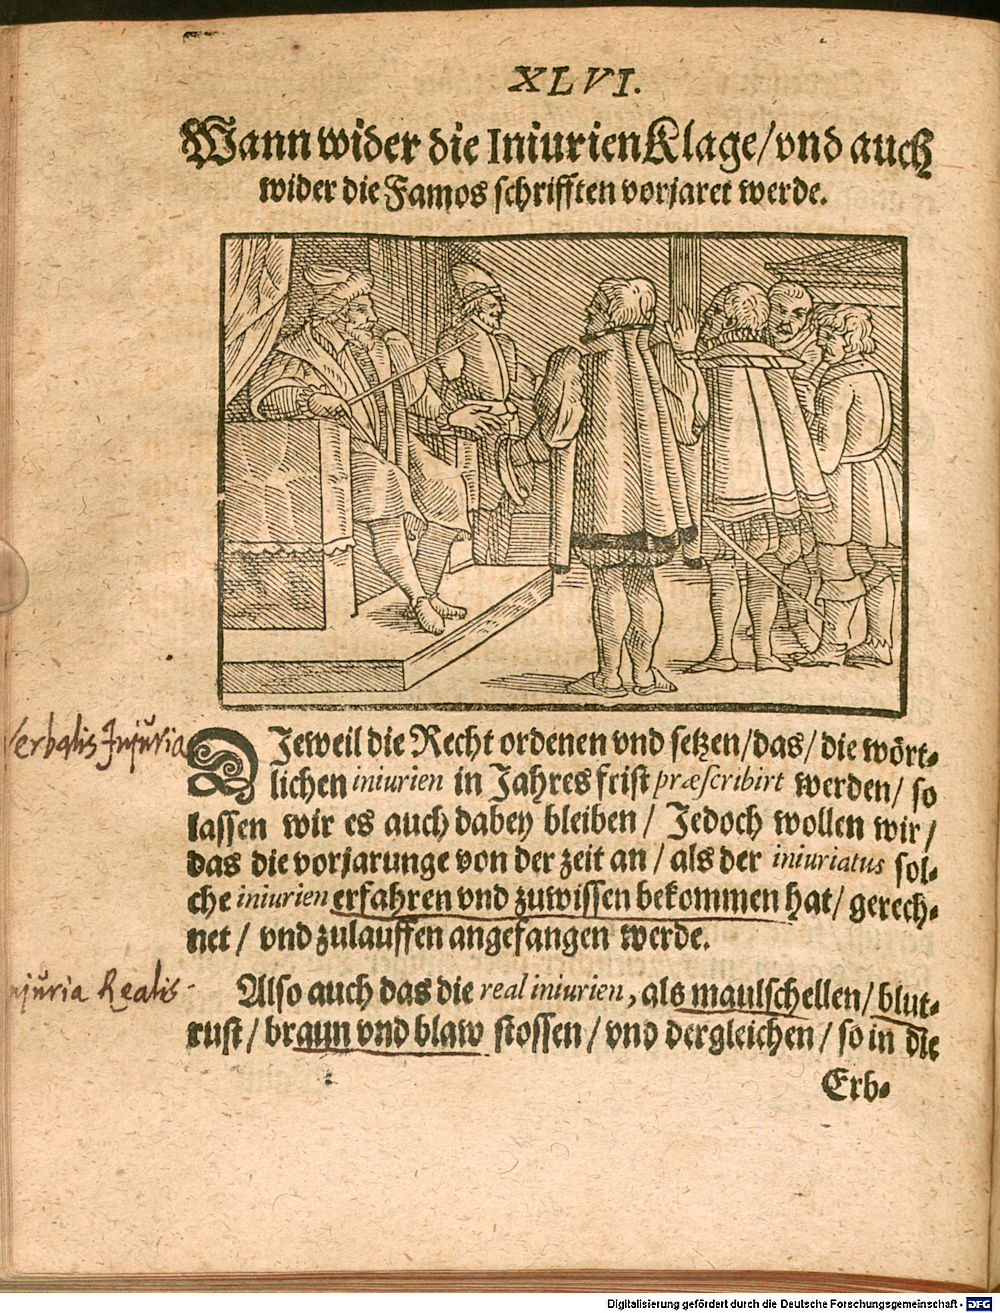 XLVI.
Wann wider die Iniurien Klage/vnd auch
wider die Famos schrifften vorjaret werde.
Verbalis Injuria
DJeweil die Recht ordenen vnd setzen/das/die wört-
lichen iniurien in Jahres frist præscribirt werden/ so
lassen wir es auch dabey bleiben / Jedoch wollen wir /
das die vorjarunge von der zeit an / als der iniuriatus sol-
che iniurien erfahren vnd zuwissen bekommen hat/ gerech-
net / vnd zulauffen angefangen werde.
Injuria Realis
Also auch das die real iniurien, als maulschellen/ blut-
rust / braun vnd blaw stossen / vnd dergleichen / so in die
Erb-
Digitalisierung gefördert durch die Deutsche Forschungsgemeinschaft - DFG